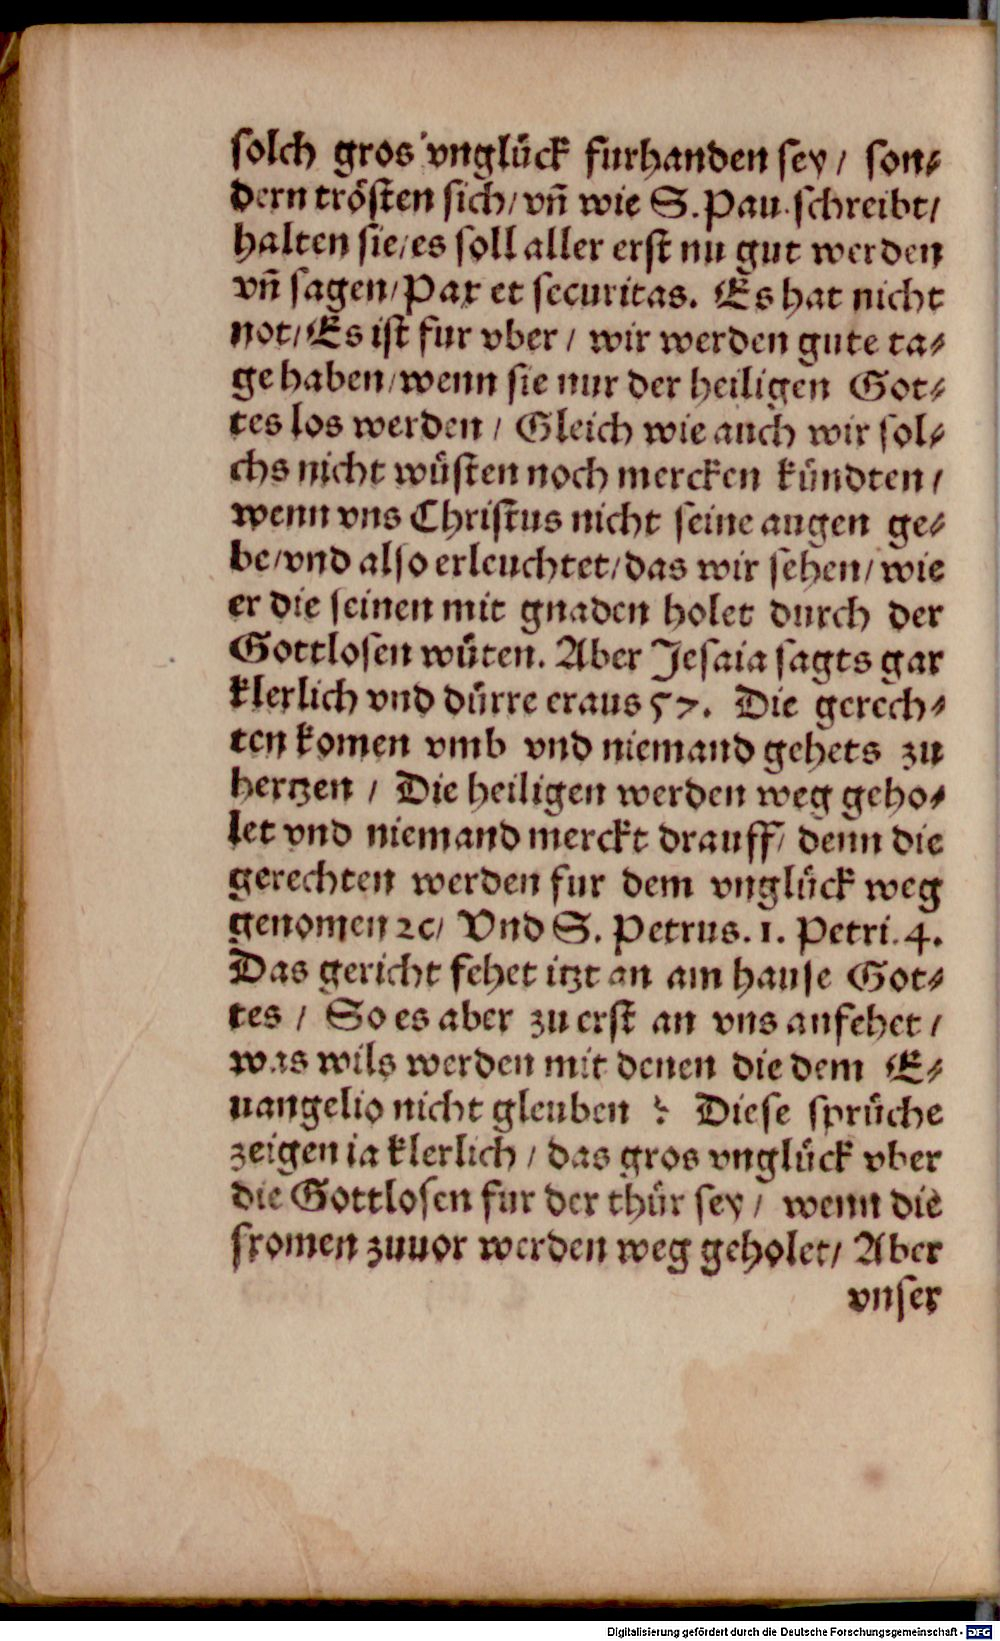 solch gros vnglück furhanden sey / son⸗
dern trösten sich / vñ wie S. Pau. schreibt /
halten sie / es soll aller erst nu gut werden
vñ sagen / Pax et securitas. Es hat nicht
not / Es ist fur vber / wir werden gute ta⸗
ge haben / wenn sie nur der heiligen Got⸗
tes los werden / Gleich wie auch wir sol⸗
chs nicht wüsten noch mercken kündten /
wenn vns Christus nicht seine augen ge⸗
be / vnd also erleuchtet / das wir sehen / wie
er die seinen mit gnaden holet durch der
Gottlosen wüten. Aber Jesaia sagts gar
klerlich vnd dürre eraus 57. Die gerech⸗
ten komen vmb vnd niemand gehets zu
hertzen / Die heiligen werden weg geho⸗
let vnd niemand merckt drauff / denn die
gerechten werden fur dem vnglück weg
genomen ꝛc / Vnd S. Petrus. 1. Petri. 4.
Das gericht fehet itzt an am hause Got⸗
tes / So es aber zu erst an vns anfehet /
was wils werden mit denen die dem E⸗
uangelio nicht gleuben ? Diese sprüche
zeigen ia klerlich / das gros vnglück vber
die Gottlosen fur der thür sey / wenn die
fromen zuuor werden weg geholet / Aber
vnser
Digitalisierung gefördert durch die Deutsche Forschungsgemeinschaft - DFG